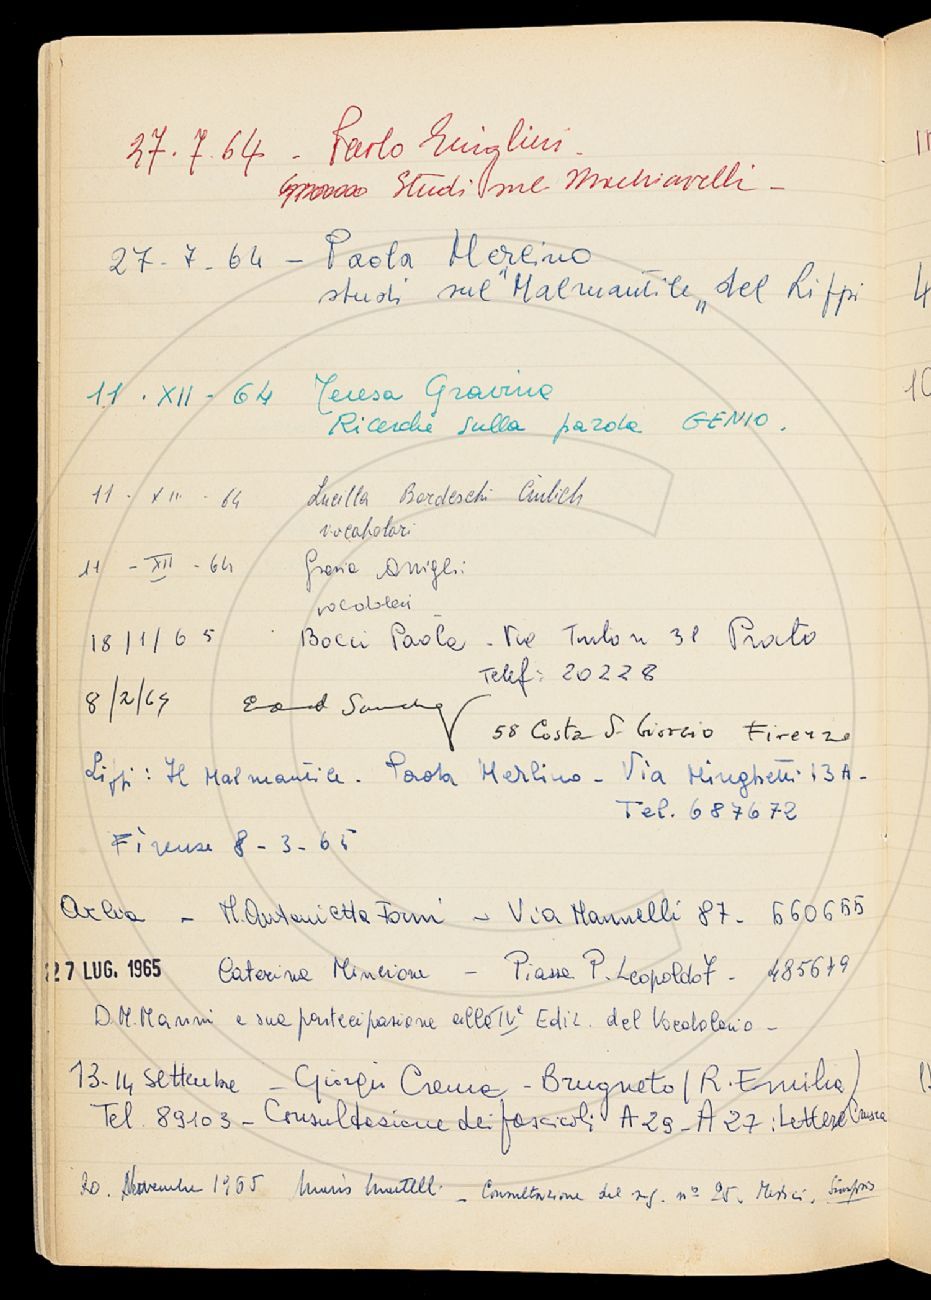 27.7.64 - Paolo
Studi sul Machiavelli -
27-7-64 - Paola Merlino
studi sul "Malmantile" del Lippi
11.XII-64 Teresa Gravina
Ricerche sulla parola GENIO.
11-XII-64 Lucilla Bardeschi Ciulich
vocabolari
11-XII-64 Grazia
vocabolari
18/1/65 Bocci Paola - Via 31 Prato
Telef: 20228
8/2/65
58 Costa S. Giorgio Firenze
Lippi: Il Malmantile. Paola Merlino - Via Minghetti 13A-
Tel. 687672
Firenze 8-3-65
- M.Antonietta Forni - Via Mannelli 87- 660655
27 LUG. 1965 Caterina Minicione - Piazza P. Leopoldo 7 - 485619
D.M.Manni e sua partecipazione alla IVª Ediz. del Vocabolario -
13-14 Settembre - Giorgio Crema - Brugneto (R.Emilia)
Tel. 89103 - Consultazione dei fascicoli A29-A27: Lettere Crusca
20. Novembre 1965 Mario Martelli - Consultazione del nº 25.